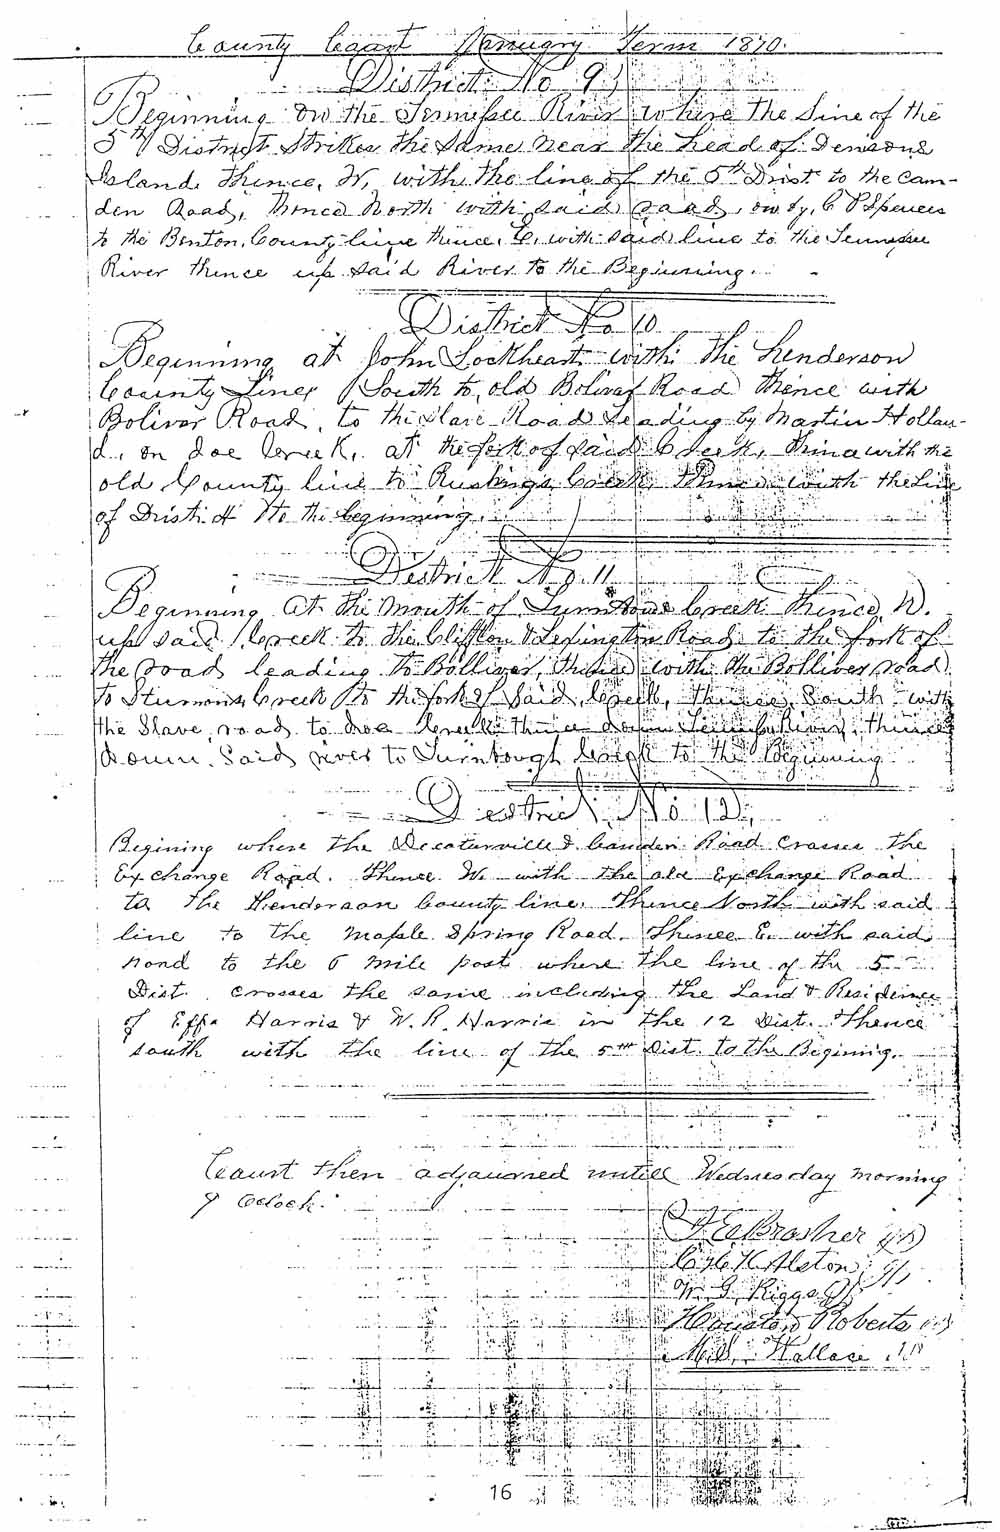 County Court January Term 1870.
District No 9
Beginning on the Tennessee River where the Line of the
5th District Strikes the Same near the head of Denisons
Island. thence, W, with the line of the 5th Drist to the Cam-
den Road, thence North with said road, on by, C P Spences
to the Benton, County line thence, E, with said line to the Tennessee
River thence up said River to the Beginning.
District No 10
Beginning at John Lockheart with the Henderson
County Line South to old Bolivar Road thence with
Bolivar Road, to the Slave Road Leading by Martin Hollan-
d, on doe Creek, at the fork of said Creek, thence with the
old County line to Rushings Creek thence with the Line
of Drist. 4 to the beginning.
District No. 11
Beginning at the Mouth of Creek Thence, W.
up said Creek to the Clifton & Lexington Road to the fork of
the road leading to Bolliver, thence with the Bolliver road
to Creek to the fork of Said, Creek, thence, South with
the Slave, road to doe Creek thence down River, thence
down. Said river to Turnbough Creek to the Beginning
District, No 12,
Begining where the Decaturville & Camden Road crosses the
Exchange Road. Thence W. with the old Exchange Road
to the Henderson County line. Thence North with said
line to the Maple Spring Road. Thence E. with said
road to the 6 mile post where the line of the 5
Dist. crosses the same including the Land & Residence
of Effa Harris & W. R. Harris in the 12 Dist. Thence
south with the line of the 5th Dist. to the Begining.
Court then adjourned untill Wednesday morning
9 Oclock.
Brasher
Alston
W. G. Riggs
Houston Roberts
M. S. Wallace
16